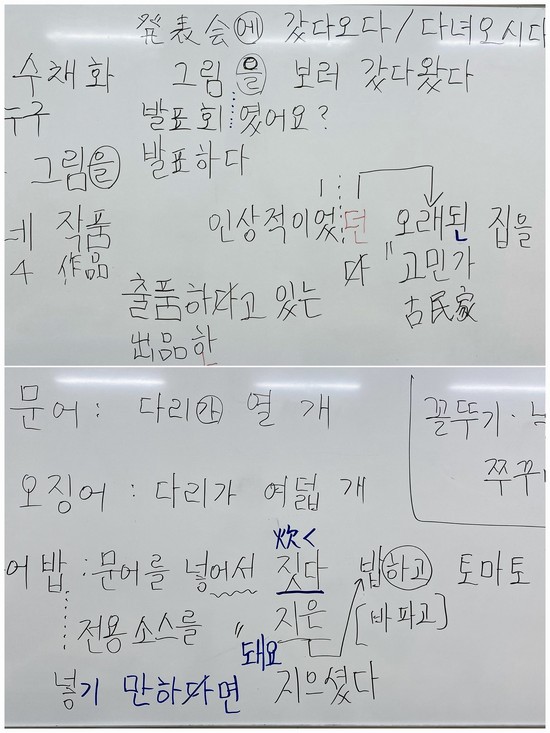 発表会에 갔다오다/다녀오시다
수채화 그림을 보러 갔다왔다
누구 발표회였어요?
그림을 발표하다
네 작품 인상적이었던 오래된 집을
4 作品 다 " 고민가
古民家
출품하다고 있는
出品한
문어: 다리가 열 개
꼴뚜기·
쭈꾸
오징어: 다리가 여덟 개
炊く
어밥:문어를 넣어서 짓다 밥하고 토마토
전용소스를 " 지은 [바파고]
돼요
넣기 만하다면 지으셨다